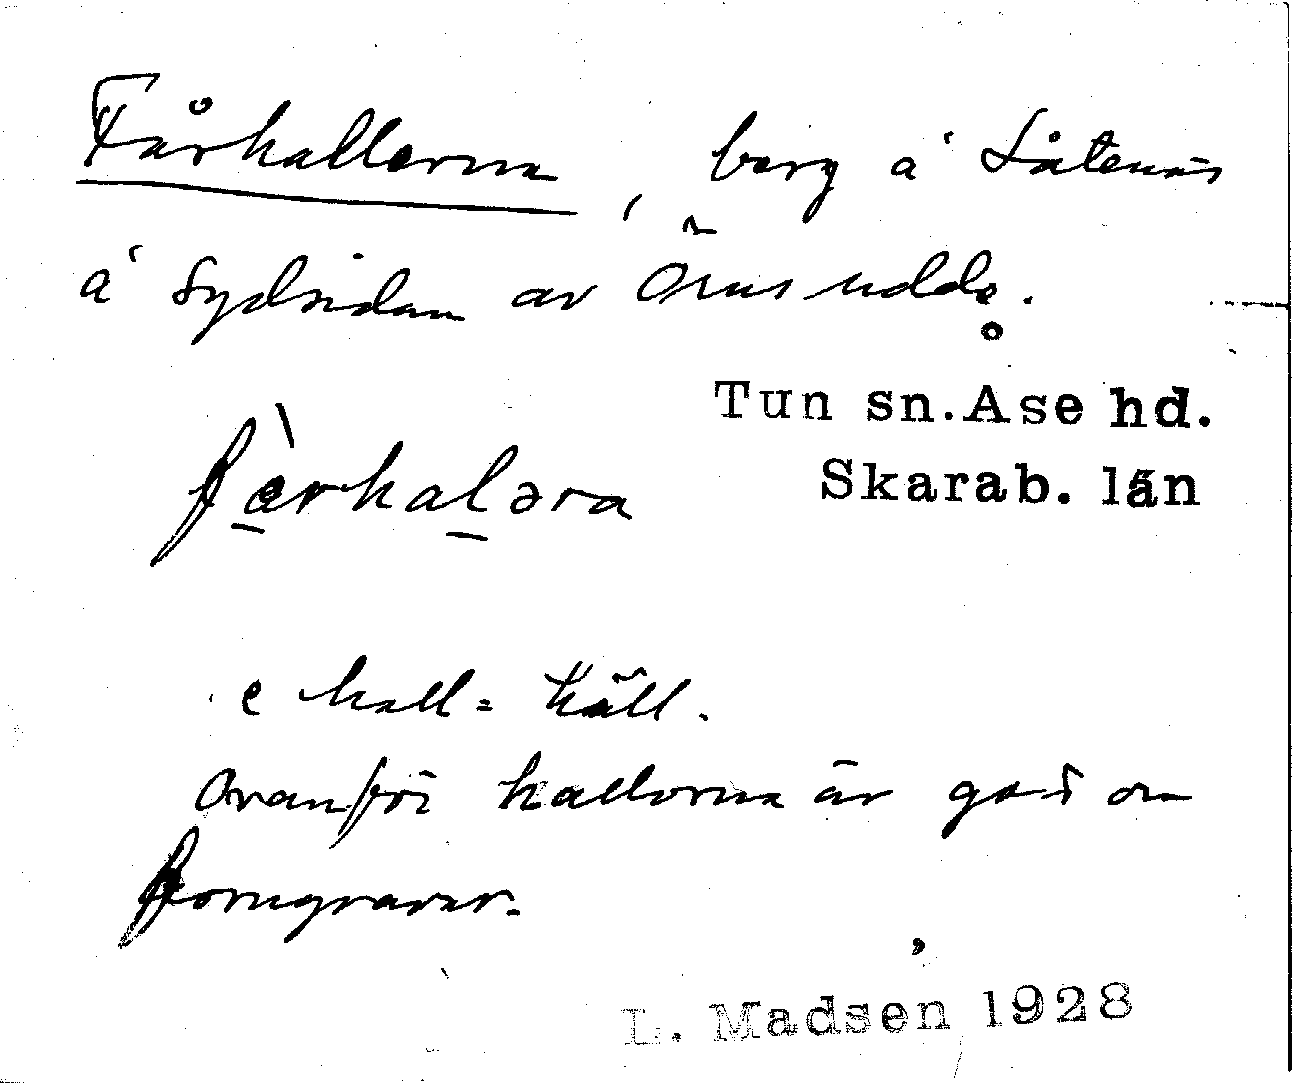 Fårhallerna, berg å Såtenäs
å sydsidan av Örnsudde.
Tun sn. Åse hd.
Skarab. län
fårhaləra
e hall = häll.
Ovanför hallorna är gott om
forngravar.
L. Madsen 1928